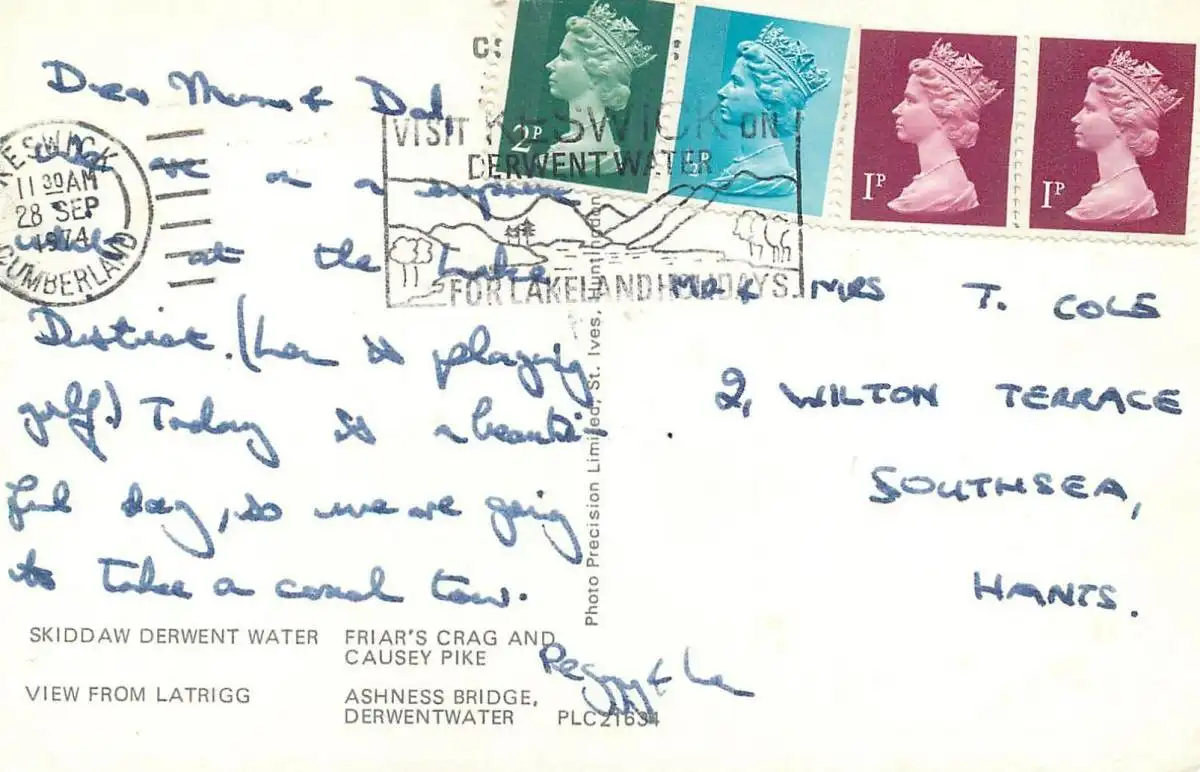 Dear Mum & Dad,
we are on a
week at the Lake
District. (Len is playing
golf) Today is a beauti-
ful day, so we are going
to take a coach tour.
Peggy & Len
MR & MRS T. COLE
2, WILTON TERRACE
SOUTHSEA,
HANTS.
KESWICK
11 30 AM
28 SEP
1974
CUMBERLAND
VISIT KESWICK ON
DERWENT WATER
FOR LAKELAND HOLIDAYS.
2P
1P
1P
Photo Precision Limited, St. Ives, Huntingdon
SKIDDAW DERWENT WATER
FRIAR'S CRAG AND
CAUSEY PIKE
VIEW FROM LATRIGG
ASHNESS BRIDGE,
DERWENTWATER
PLC21634